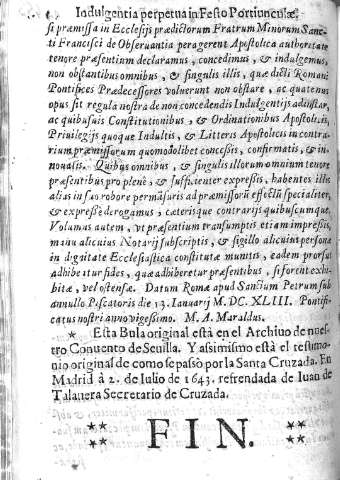 Indulgentia perpetua in Festo Portiunculæ.
si præmissa in Ecclesijs prædictorum Fratrum Minorum Sanc-
ti Francisci de Obseruantia peragerent Apostolica authoritate
tenore præsentium declaramus, concedimus, & indulgemus,
non obstantibus omnibus, & singulis illis, quæ dicti Romani
Pontifices Prædecessores voluerunt non obstare, ac quatenus
opus sit regula nostra de non concedendis Indulgentijs ad instar,
ac quibusuis Constitutionibus, & Ordinationibus Apostolicis,
Priuilegijs quoque Indultis, & Litteris Apostolicis in contra-
rium præmissorum quomodolibet concessis, confirmatis, & in-
nouatis. Quibus omnibus, & singulis illorum omnium tenore
præsentibus pro plenè & sufficienter expressis, habentes illis
alias in suo robore permãsuris ad præmissorũ effectũ specialiter,
& expressè derogamus, cæterisque contrarijs quibuscumque.
Volumus autem, vt præsentium transumptis etiam impressis,
manu alicuius Notarij subscriptis, & sigillo alicuius personæ
in dignitate Ecclesiastica constitutæ munitis, eadem prorsus
adhibeatur fides, quæ adhiberetur præsentibus, si forent exhi-
bitæ, vel ostensæ. Datum Romæ apud Sanctum Petrum sub
annullo Piscatoris die 13. Ianuarij M.DC.XLIII. Pontifi-
catus nostri anno vigessimo. M. A. Maraldus.
* Esta Bula original està en el Archiuo de nues-
tro Conuento de Seuilla. Y assimismo està el testimo-
nio original de como se passò por la Santa Cruzada. En
Madrid à 2. de Iulio de 1643. refrendada de Iuan de
Talauera Secretario de Cruzada.
FIN.